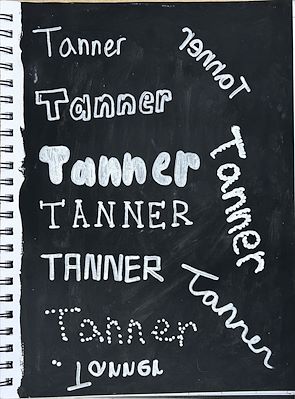 Tanner
Tanner
Tanner
TANNER
TANNER
Tanner
Tanner
Tanner
Tanner
Tanner